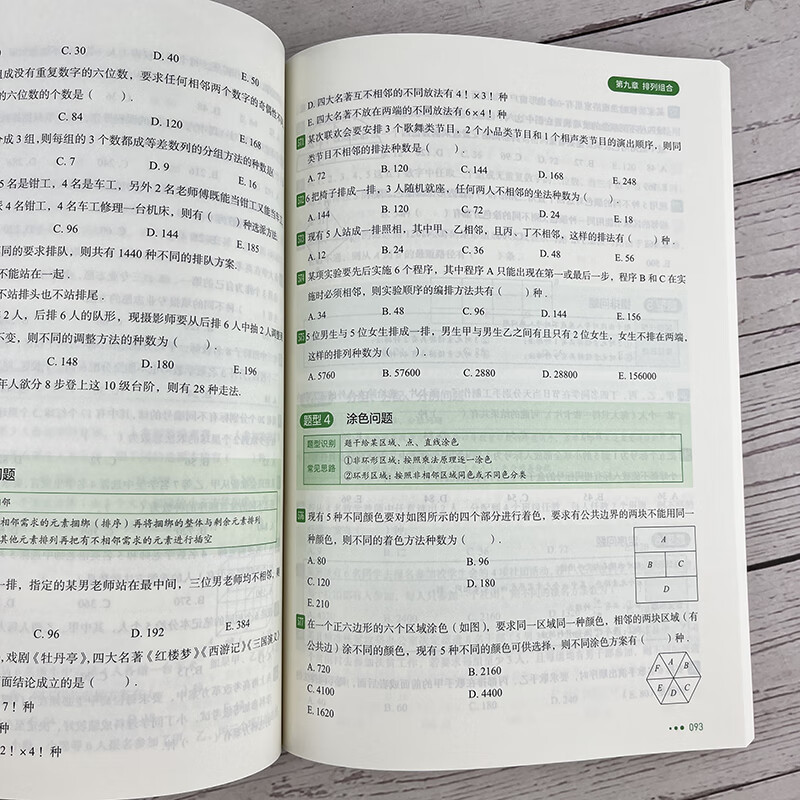 C. 30 D. 40
E. 50
组成没有重复数字的六位数，要求任何相邻两个数字的奇偶性不
的六位数的个数是（ ）.
C. 84 D. 120
E. 168
分成 3 组,则每组的 3 个数都成等差数列的分组方法的种数是
C. 7 D. 9
E. 16
5 名是钳工，4 名是车工，另外 2 名老师傅既能当钳工又能当车工
4 名钳工，4 名车工修理一台机床，则有（ ）种选派方法.
C. 96 D. 144
E. 185
同的要求排队，则共有 1440 种不同的排队方案.
不能站在一起.
不站排头也不站排尾.
2 人，后排 6 人的队形，现摄影师要从后排 6 人中抽 2 人调整
不变，则不同的调整方法的种数为（ ）.
C. 148 D. 180
E. 196
年人欲分 8 步登上这 10 级台阶，则有 28 种走法.
问题
相邻需求的元素捆绑（排序）再将捆绑的整体与剩余元素排列
其他元素排列再把有不相邻需求的元素进行插空
一排，指定的某男老师站在最中间，三位男老师均不相邻，则
C. 96 D. 192
E. 384
，戏剧《牡丹亭》，四大名著《红楼梦》《西游记》《三国演义》
面结论成立的是（ ）.
7！种
种
2！×4！种
第九章 排列组合
D. 四大名著互不相邻的不同放法有 4！×3！种
E. 四大名著不放在两端的不同放法有 6×4！种
某次联欢会要安排 3 个歌舞类节目，2 个小品类节目和 1 个相声类节目的演出顺序，则同
类节目不相邻的排法种数是（ ）.
A. 72 B. 120 C. 144 D. 168 E. 248
6 把椅子排成一排，3 人随机就座，任何两人不相邻的坐法种数为（ ）.
A. 144 B. 120 C. 72 D. 24 E. 18
现有 5 人站成一排照相，其中甲、乙相邻，且丙、丁不相邻，这样的排法有（ ）种.
A. 12 B. 24 C. 36 D. 48 E. 56
某项实验要先后实施 6 个程序，其中程序 A 只能出现在第一或最后一步，程序 B 和 C 在实
施时必须相邻，则实验顺序的编排方法共有（ ）种.
A. 34 B. 48 C. 96 D. 144 E. 156
5 位男生与 5 位女生排成一排，男生甲与男生乙之间有且只有 2 位女生，女生不排在两端，
这样的排列种数为（ ）.
A. 5760 B. 57600 C. 2880 D. 28800 E. 156000
题型 4 涂色问题
题型识别 题干给某区域、点、直线涂色
常见思路 ①非环形区域：按照乘法原理逐一涂色
②环形区域：按照非相邻区域同色或不同色分类
现有 5 种不同颜色要对如图所示的四个部分进行着色，要求有公共边界的两块不能用同一
种颜色，则不同的着色方法种数为（ ）.
A. 80 B. 96
C. 120 D. 180
E. 210
A
B C
D
在一个正六边形的六个区域涂色（如图），要求同一区域同一种颜色，相邻的两块区域（有
公共边）涂不同的颜色，现有 5 种不同的颜色可供选择，则不同涂色方案有（ ）种.
A. 720 B. 2160
C. 4100 D. 4400
E. 1620
F A B
E D C
093